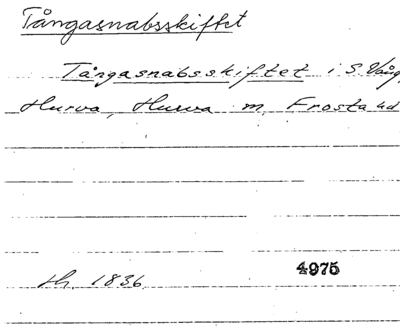 Tångasnabsskiftet
Tångasnabsskiftet i S. Vång,
Hurva, Hurva m, Frosta hd
lh. 1836
4975